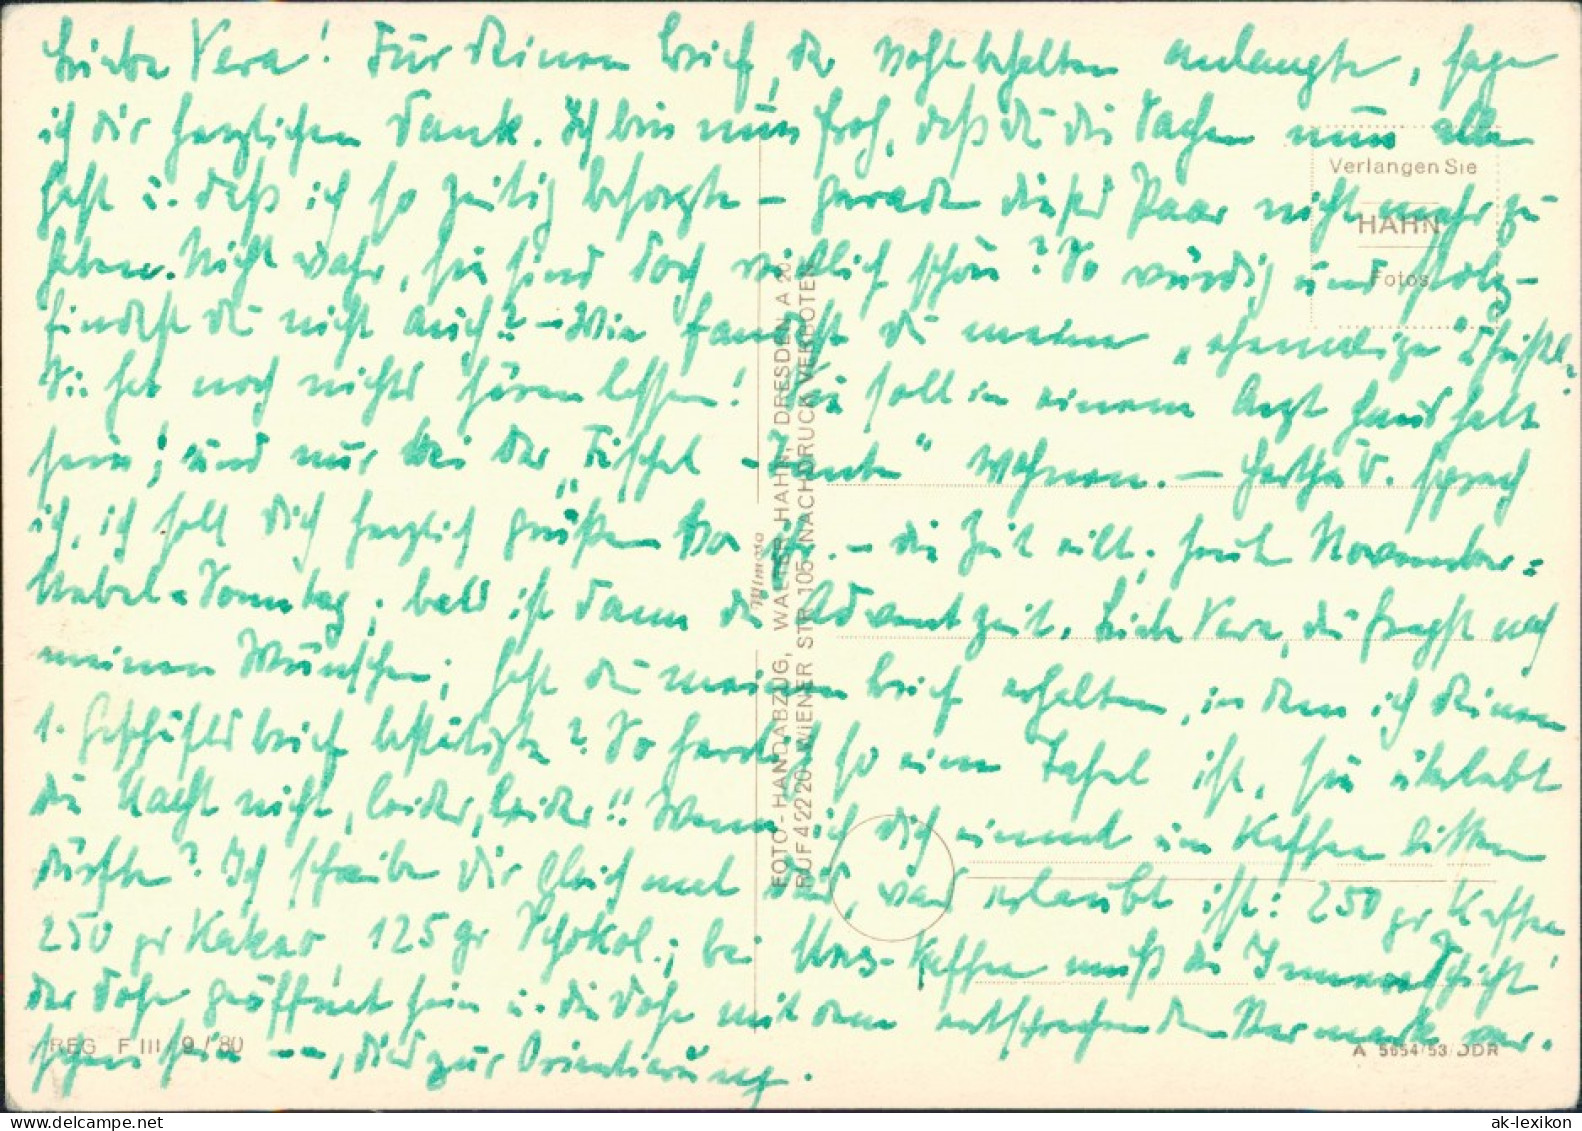 Liebe Vera! Für Deinen Brief, der wohlbehalten anlangte, sage
ich dir herzlichen Dank. Ich bin nun froh, daß du die Sachen nun alle
hast u. daß ich so zeitig besorgte – gerade dieses Paar nicht mehr zu
haben. Nicht wahr, sie sind doch wirklich schön? So würdig und stolz –
findest du nicht auch? – Wie fandest du meine „ehemalige“
Sie hat noch nichts hören lassen! Sie soll in einem Arzthaushalt
sein; und nur bei der „Tischel-Tante“ wohnen. – Hertha V. sprach
ich, ich soll dich herzlich grüßen von ihr. – die Zeit eilt; heute November=
Nebel=Sonntag; bald ist dann die Adventzeit. Liebe Vera, du fragst nach
meinen Wünschen; hast du meinen Brief erhalten, in dem ich Deinen
1. Geschäftsbrief bestätigte? So herrlich so eine Tafel ist, sie überlebt
die Nacht nicht, leider, leider!! Wenn ich dich einmal um Kaffee bitten
dürfte? Ich schreibe dir gleich mal das, was erlaubt ist: 250 gr Kaffee
250 gr Kakao, 125 gr Schokol.; bei Nes-Kaffee muß die Innenschicht
der Dose geöffnet sein u. die Dose mit dem entsprechenden Vermerk ver-
sehen sein –, dies zur Orientierung.
Verlangen Sie
HAHN
Fotos
Mimosa
FOTO-HANDABZUG, WALTER HAHN, DRESDEN A 20
RUF 42220 WIENER STR. 105 NACHDRUCK VERBOTEN
REG F III 9/80
A 5654/53/DDR
ak-lexikon.com